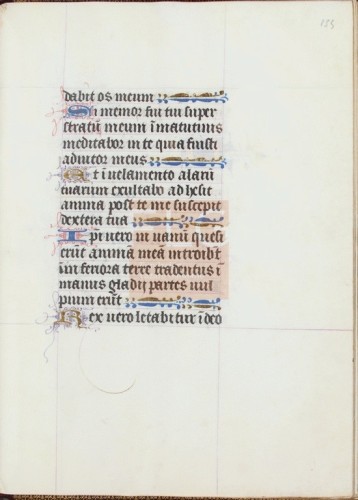 155
dabit os meum
Si memor fui tui super
stratū meum ī matutinis
meditabor in te quia fuisti
adiutor meus
Et ī uelamento alarū
tuarum exultabo adhesit
anima post te me suscepit
dextera tua
Ipi uero in uanū quesi
erūt animā meā introibūt
in feriora terre tradentus ī
manus gladij partes uul
pium erūt
Rex uero letabitur ī deo